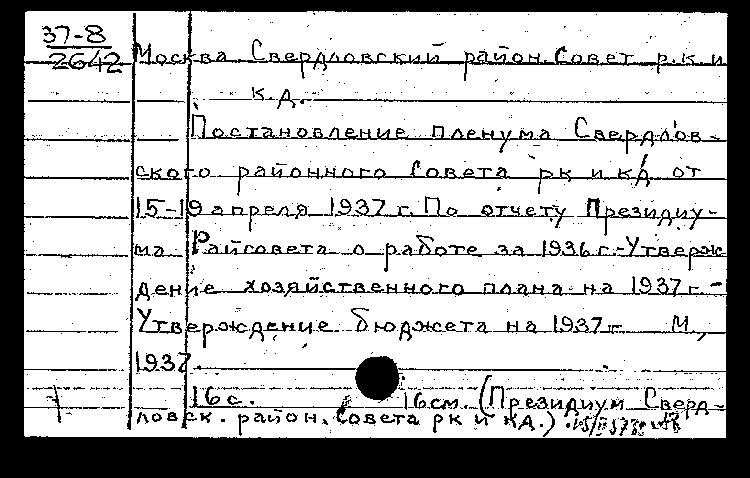 37-8
2642
Москва Свердловский район. Совет р.к. и
к.д.
Постановление пленума Свердлов-
ского районного Совета рк и кд от
15-19 апреля 1937 г. По отчету Президиу-
ма Райсовета о работе за 1936 г.-Утверж
дение хозяйственного плана на 1937 г.-
Утверждение бюджета на 1937 г. М.,
1937.
16 с. 16 см. (Президиум Сверд-
ловск. район. Совета рк и кд.)